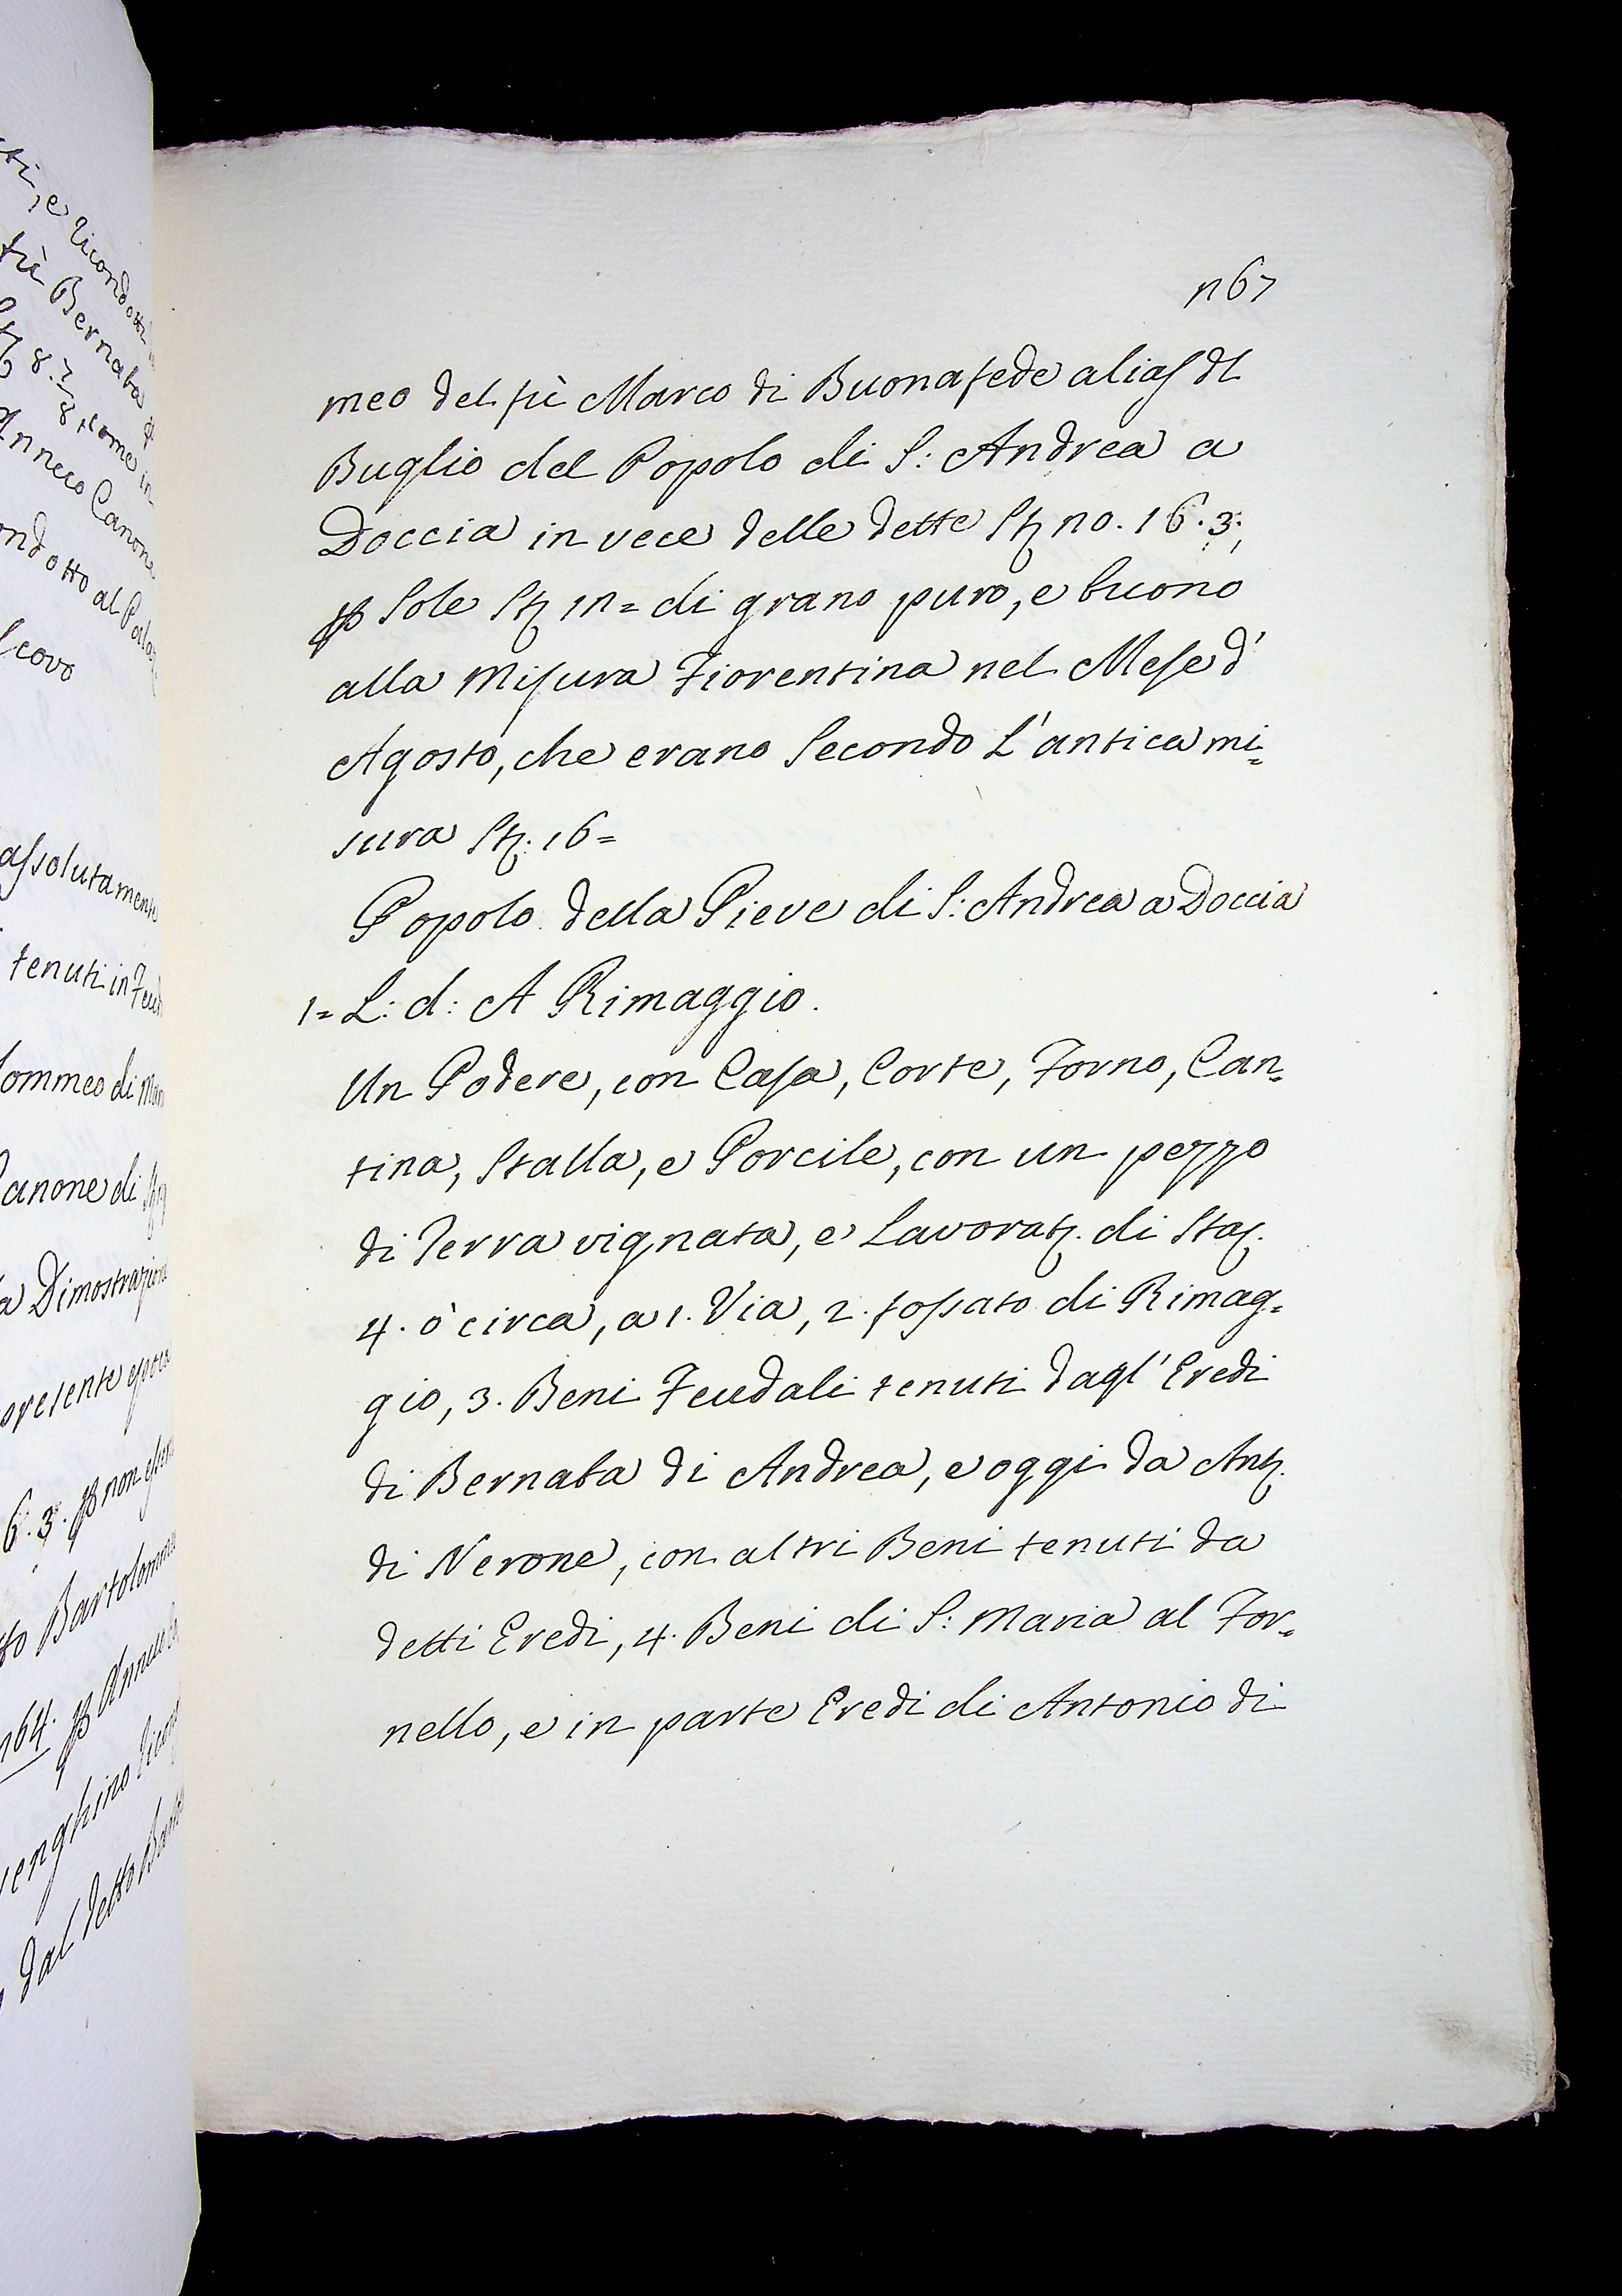 ti, e Ricondotti
fù Bernaba
8. 7/8, come in
Annuo Canone
ondotto al Palaz
scovo
assolutamente
tenuti in Feud
lommeo di Mar
Canone di
a Dimostrazione
presente
6. 3. ꝑ non
to Bartolomme
164. ꝑ Annuo
enghino
dal detto Bart
n67
meo del fù Marco di Buonafede alias dl
Buglio del Popolo di S: Andrea a
Doccia in vece delle dette St no. 16. 3.
ꝑ Sole St 1n = di grano puro, e buono
alla Misura Fiorentina nel Mese d'
Agosto, che erano Secondo L'antica mi=
sura St. 16 =
Popolo della Pieve di S: Andrea a Doccia
1 = L: d: A Rimaggio.
Un Podere, con Casa, Corte, Forno, Can=
tina, Stalla, e Porcile, con un pezzo
di Terra vignata, e Lavorat. di Sta.
4. ò circa, a 1. Via, 2. fossato di Rimag=
gio, 3. Beni Feudali tenuti dagl' Eredi
di Bernaba di Andrea, e oggi da Ant.
di Nerone, con altri Beni tenuti da
detti Eredi, 4. Beni di S: Maria al For=
nello, e in parte Eredi di Antonio di